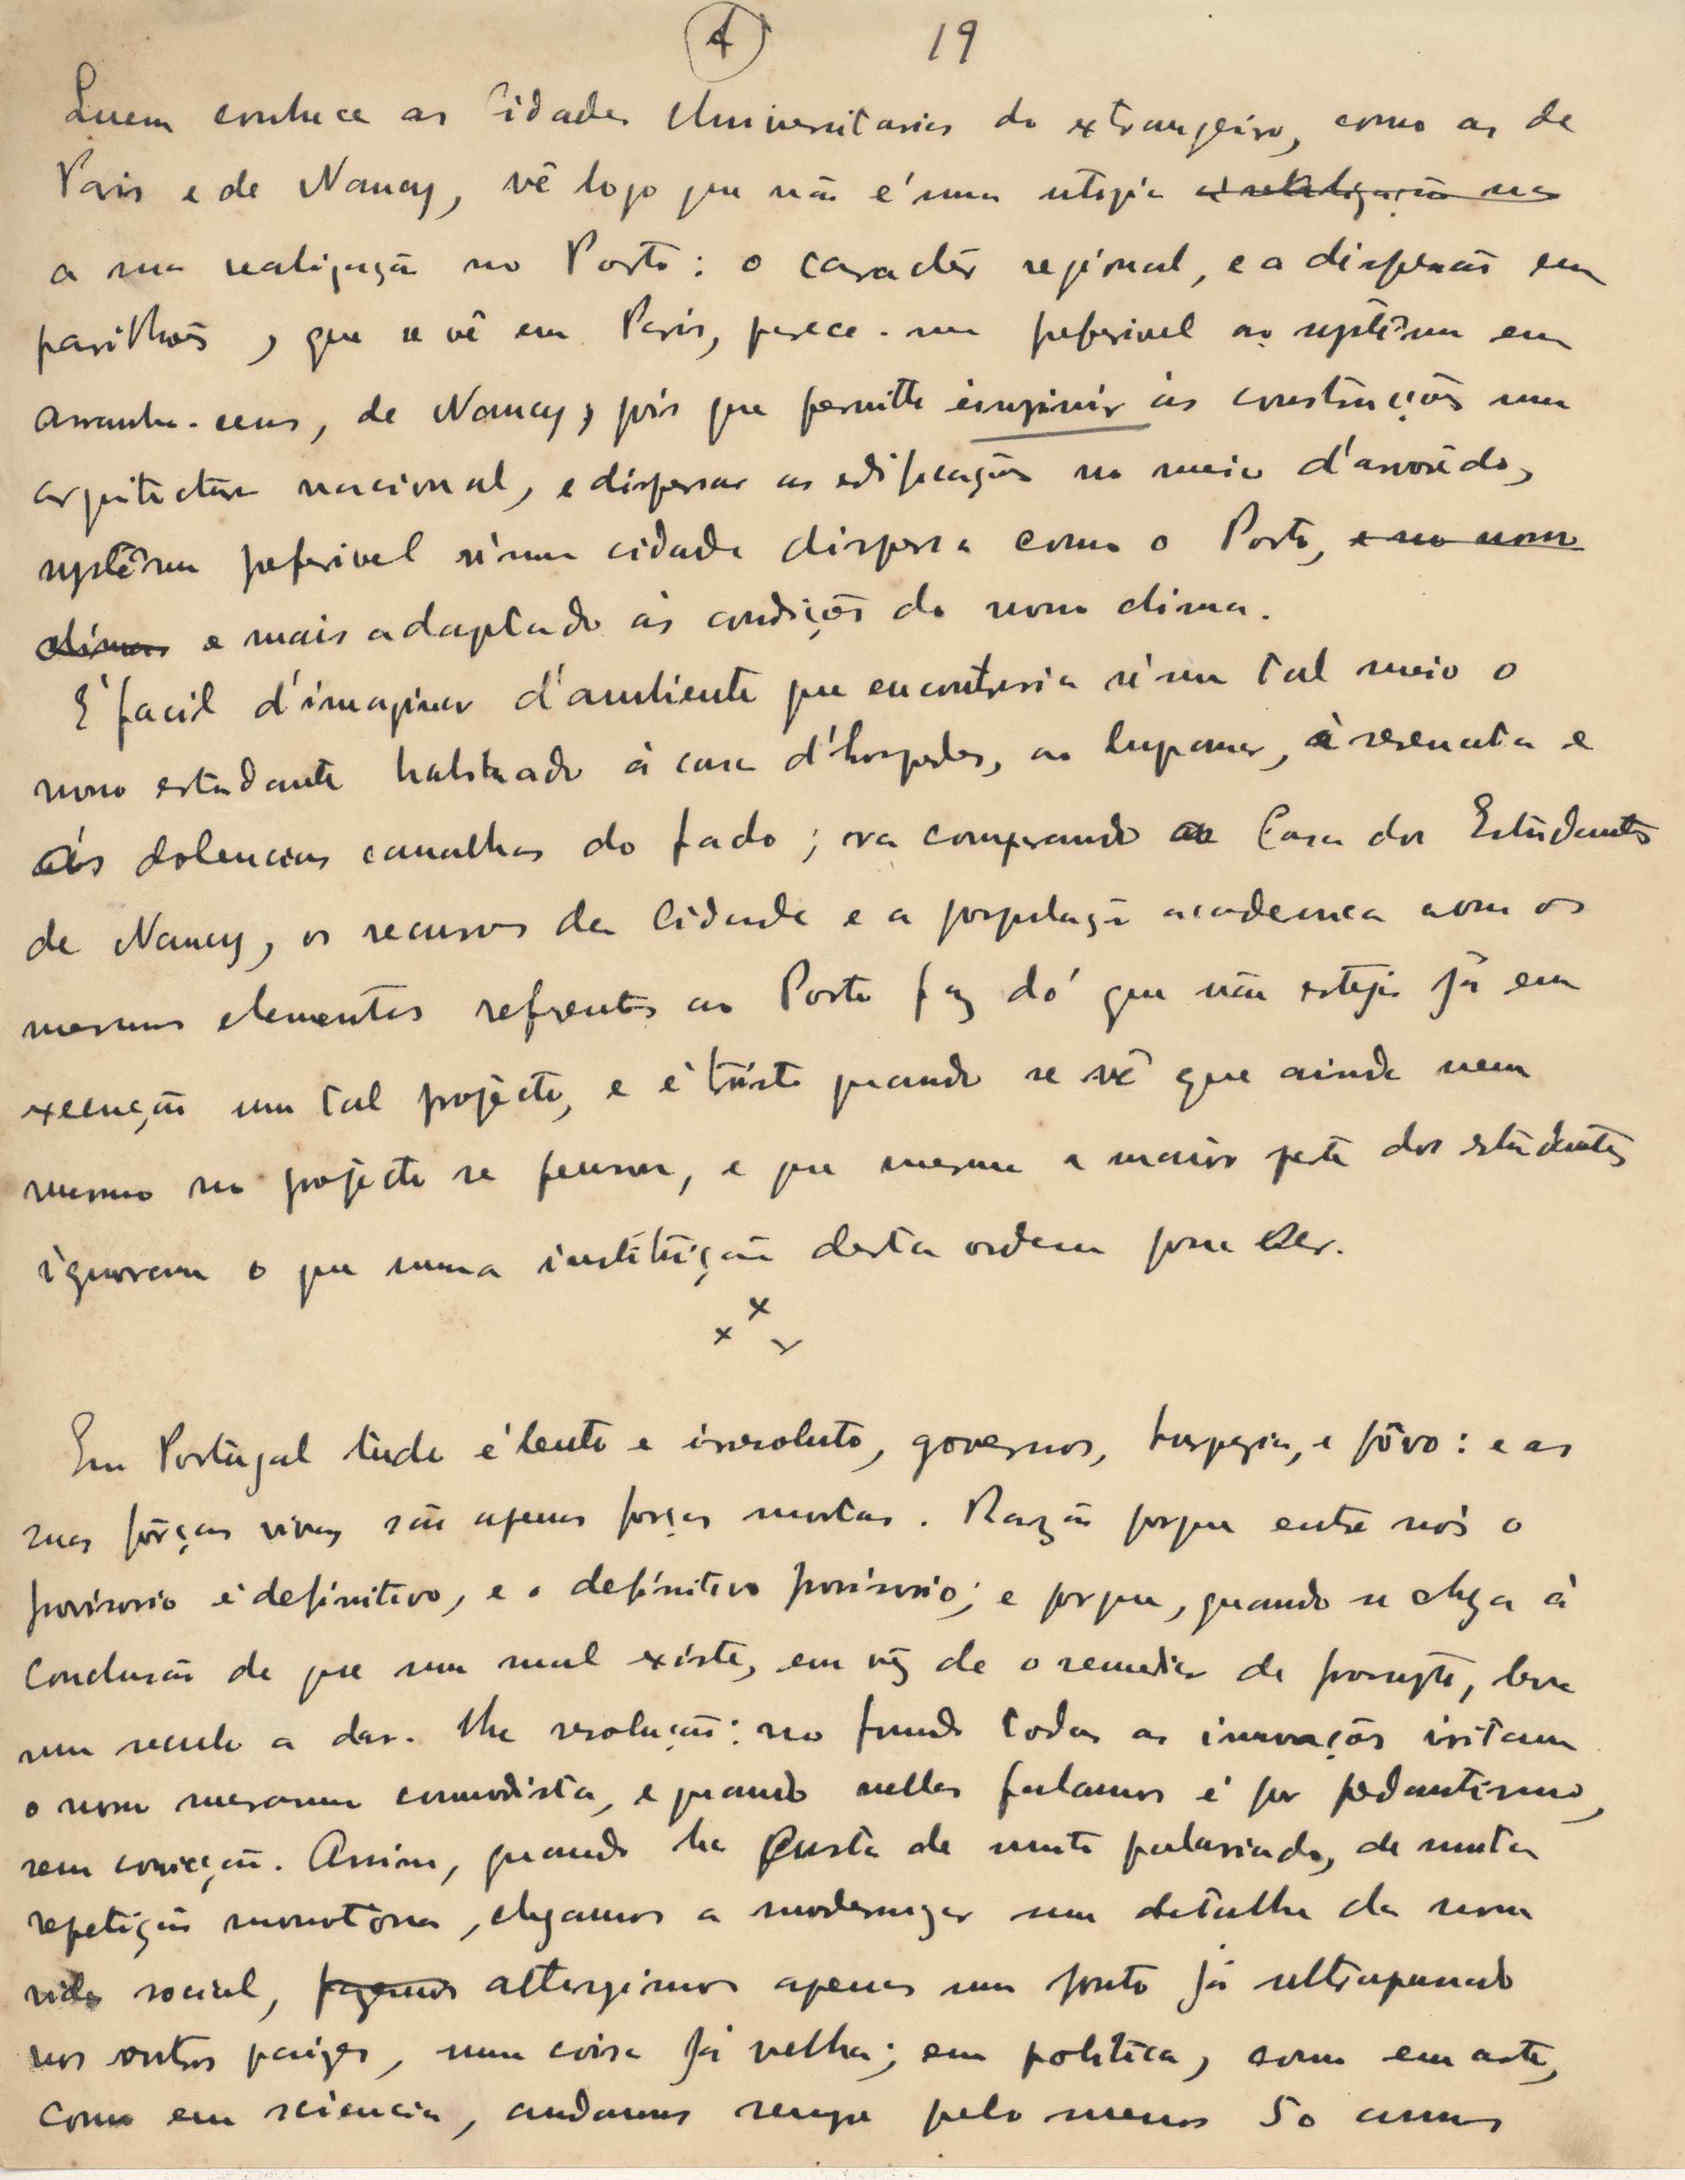 4 19
Quem conhece as Cidades Universitarias do extrangeiro, como as de
Paris e de Nancy, vê logo que não é uma utopia a realização no
a sua realização no Porto: o caracter regional, e a dispersão em
pavilhões, que se vê em Paris, parece-me preferivel ao systêma em
arranha-ceus, de Nancy, pois que permitte imprimir ás construcções uma
arquitectura nacional, e dispersar as edificações no meio d'arvorêdo,
systêma preferivel n'uma cidade dispersa como o Porto, e no nosso
clima e mais adaptado ás condições do nosso clima.
É facil d'imaginar d'ambiente que encontraria n'um tal meio o
nosso estudante habituado á casa d'hospedes, ao lupanar, á serenata e
ás dolencias canalhas do fado; ora comparando a Casa dos Estudantes
de Nancy, os recursos da Cidade e a população academica com os
mesmos elementos referentes ao Porto faz dó que não esteja já em
execução um tal projecto, e é triste quando se vê que ainda nem
mesmo no projecto se pensou, e que mesmo a maior parte dos estudantes
ignoram o que uma instituição desta ordem possa ser.
x x x
Em Portugal tudo é lento e irresoluto, governos, burguezia, e pôvo: e as
suas fôrças vivas são apenas forças mortas. Razão porque entre nós o
provisorio é definitivo, e o definitivo provisorio; e porque, quando se chega á
conclusão de que um mal existe, em vêz de o remediar de prompto, leva
um seculo a dar-lhe resolução: no fundo todas as inovações irritam
o nosso marasmo comodista, e quando nellas falamos é por pedantismo,
sem convicção. Assim, quando há custa de muito palavriado, de muita
repetição monotona, chegamos a modernizar um detalhe da nossa
vida social, fazemos attingimos apenas um ponto já ultrapassado
nos outros paizes, uma coisa já velha; em politica, como em arte,
como em sciencia, andamos sempre pelo menos 50 annos